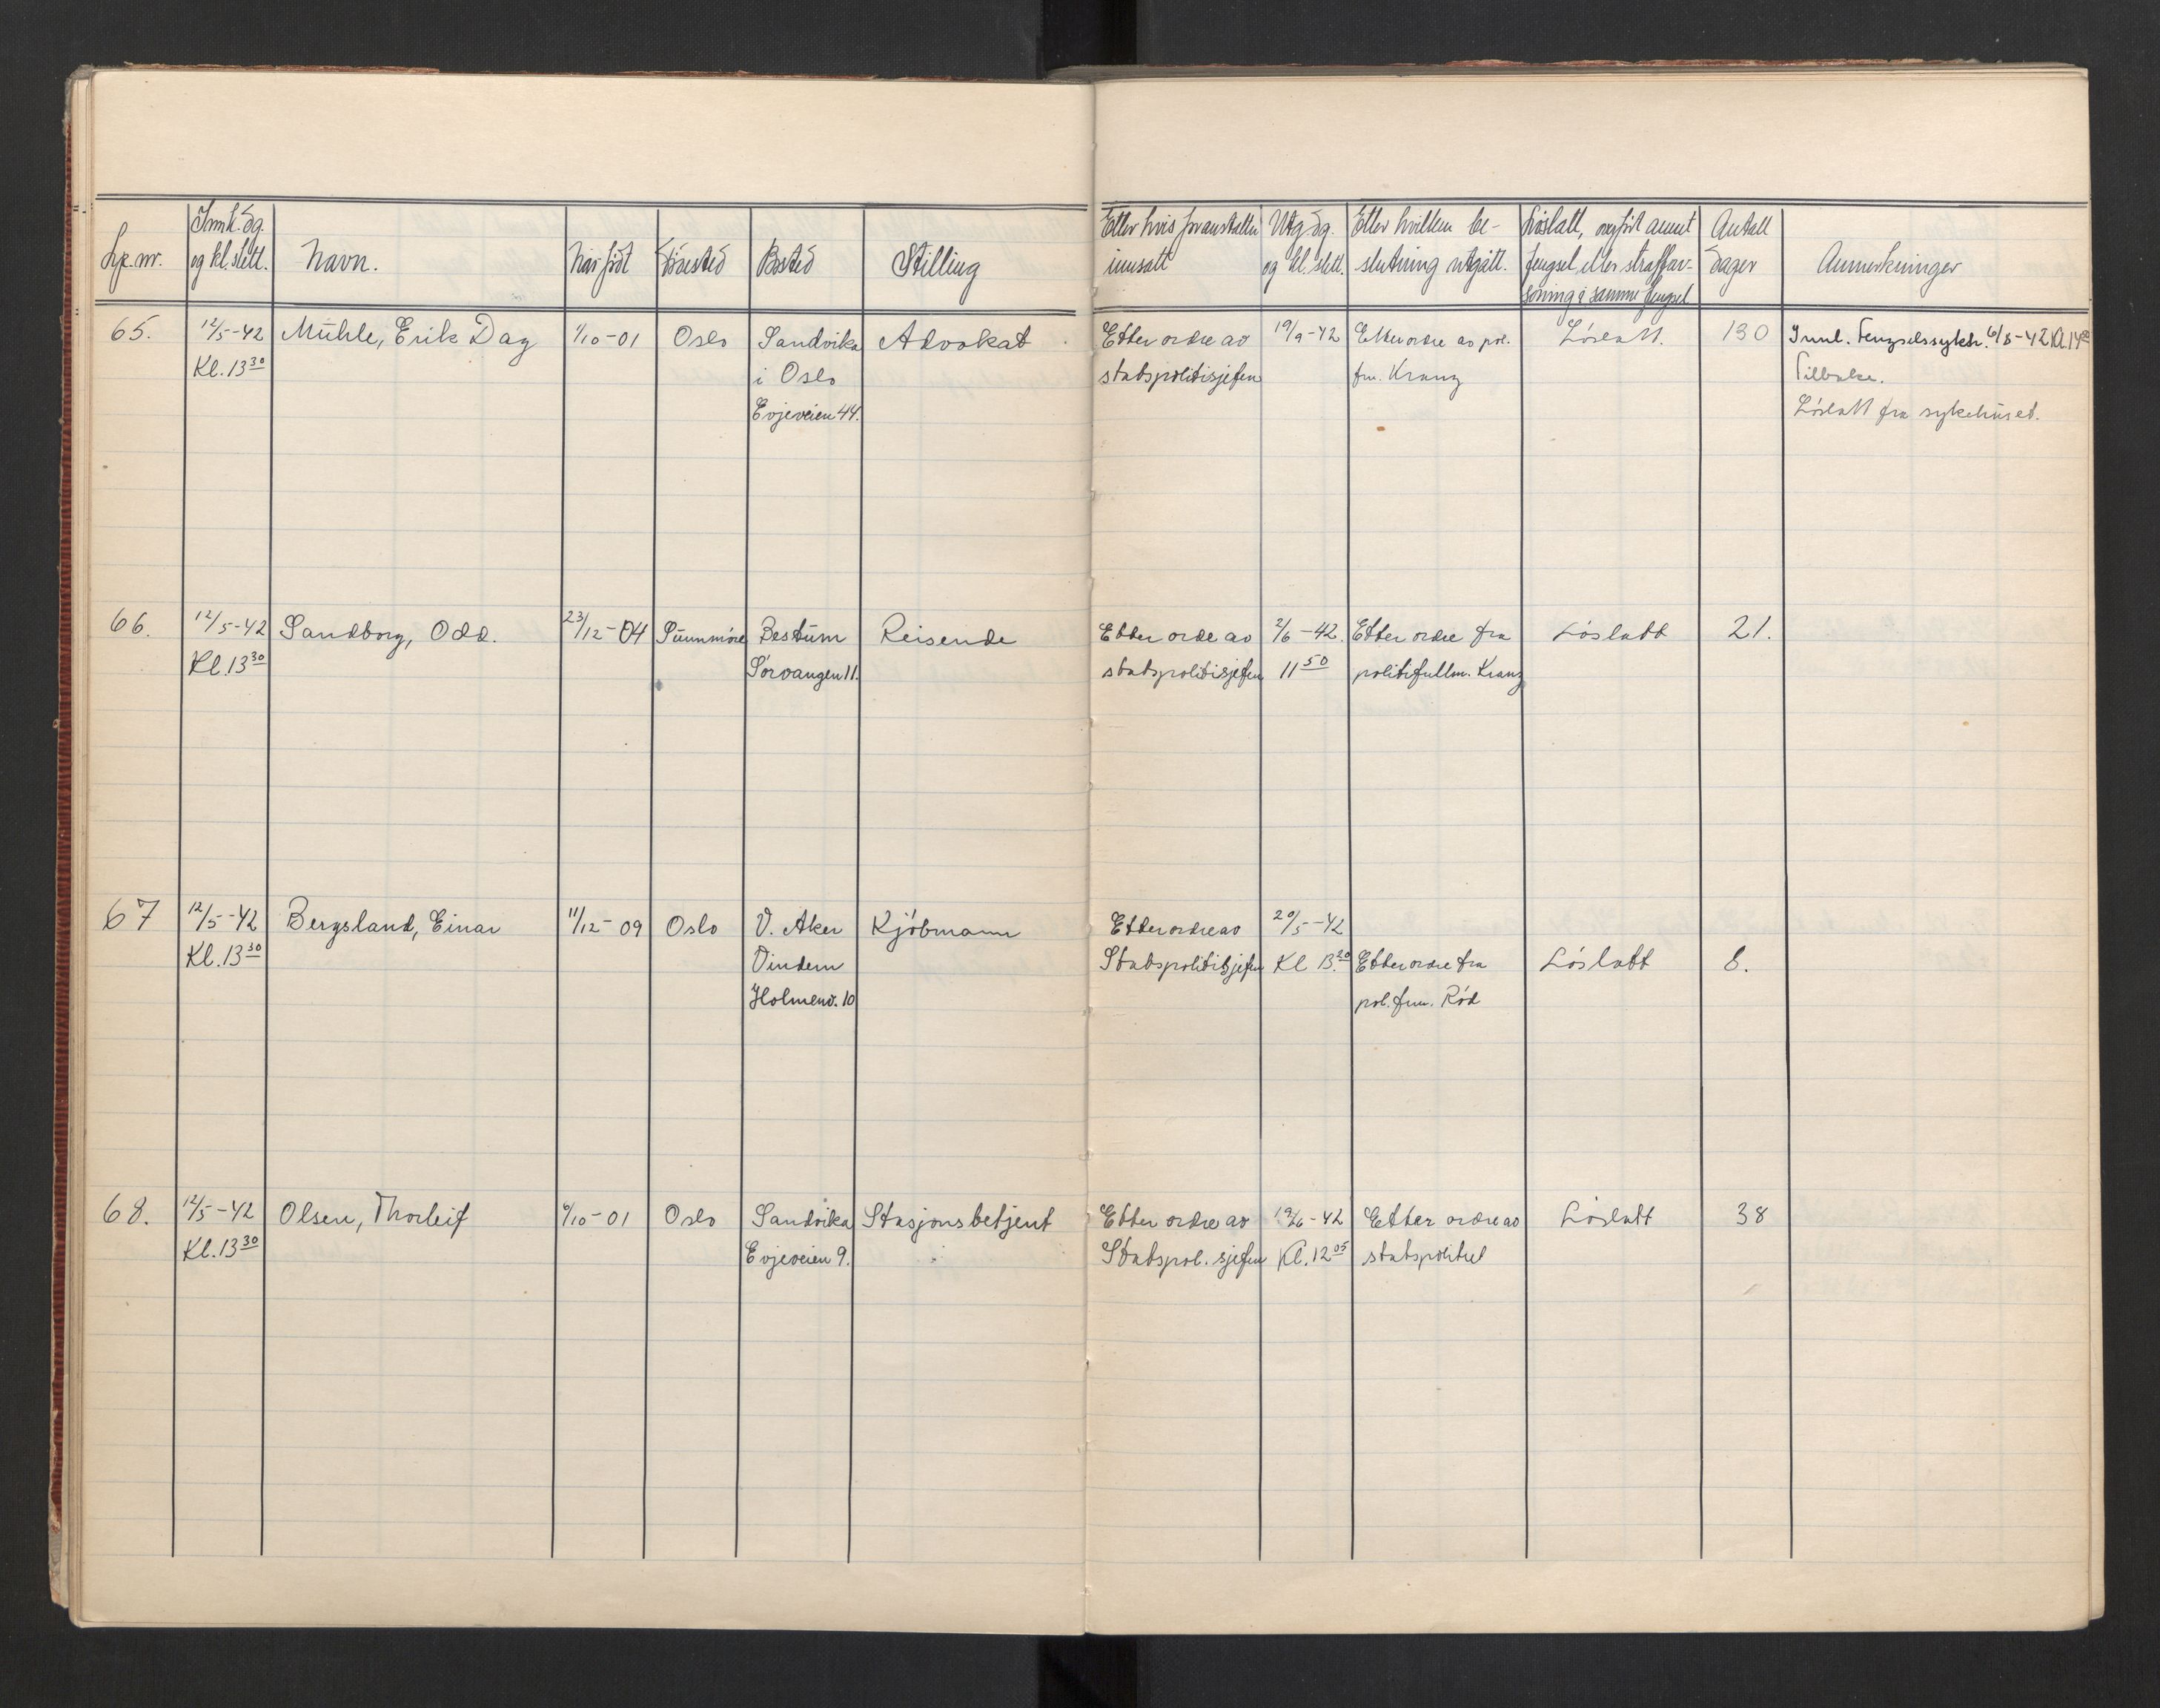 Lp.nr.
Innk. dg. og kl.slett.
Navn.
Når født
Fødested
Bosted
Stilling
Etter hvis foranstalten innsatt
Utg. dg. og kl. slett.
Etter hvilken be-
slutning utgått.
Løslatt, overført annet
fengsel eller straffav-
soning i samme fengsel
Antall dager
Anmerkninger
65. 12/5-42 Mühle, Erik Dag 1/10-01 Oslo Sandvika Advokat Etter ordre av 19/9-42 Etter ordre av pol. Løslatt. 130 Innl. Fengselssykeh. 6/8-42 Kl.14
Kl. 13 30 i Oslo statspolitisjefen fm. Kranz Tilbake.
Evjeveien 44. Løslatt fra sykehuset.
66. 12/5-42 Sandborg, Odd. 23/12-04 Sunnmöre Bestum Reisende Etter orde av 2/6-42. Etter ordre fra Löslatt 21.
Kl. 13 30 Sörvangen 11. statspolitisjefen 11 50 politifullm. Kranz
67 12/5-42 Bergsland, Einar 11/12-09 Oslo V. Aker Kjöbmann Etter ordre av 20/5-42
Kl. 13 30 Vindern Statspolitisjefen Kl 13.30 Etter ordre fra Löslatt 8.
Holmenv. 10 pol. fm. Röd
68. 12/5-42 Olsen, Thorleif /10-01 Oslo Sandvika Stasjonsbetjent Etter ordre av 19/6-42 Etter ordre av Löslatt 38
Kl. 13 30 Evjeveien 9. Statspol. sjefen Kl. 12 05 statspolitiet